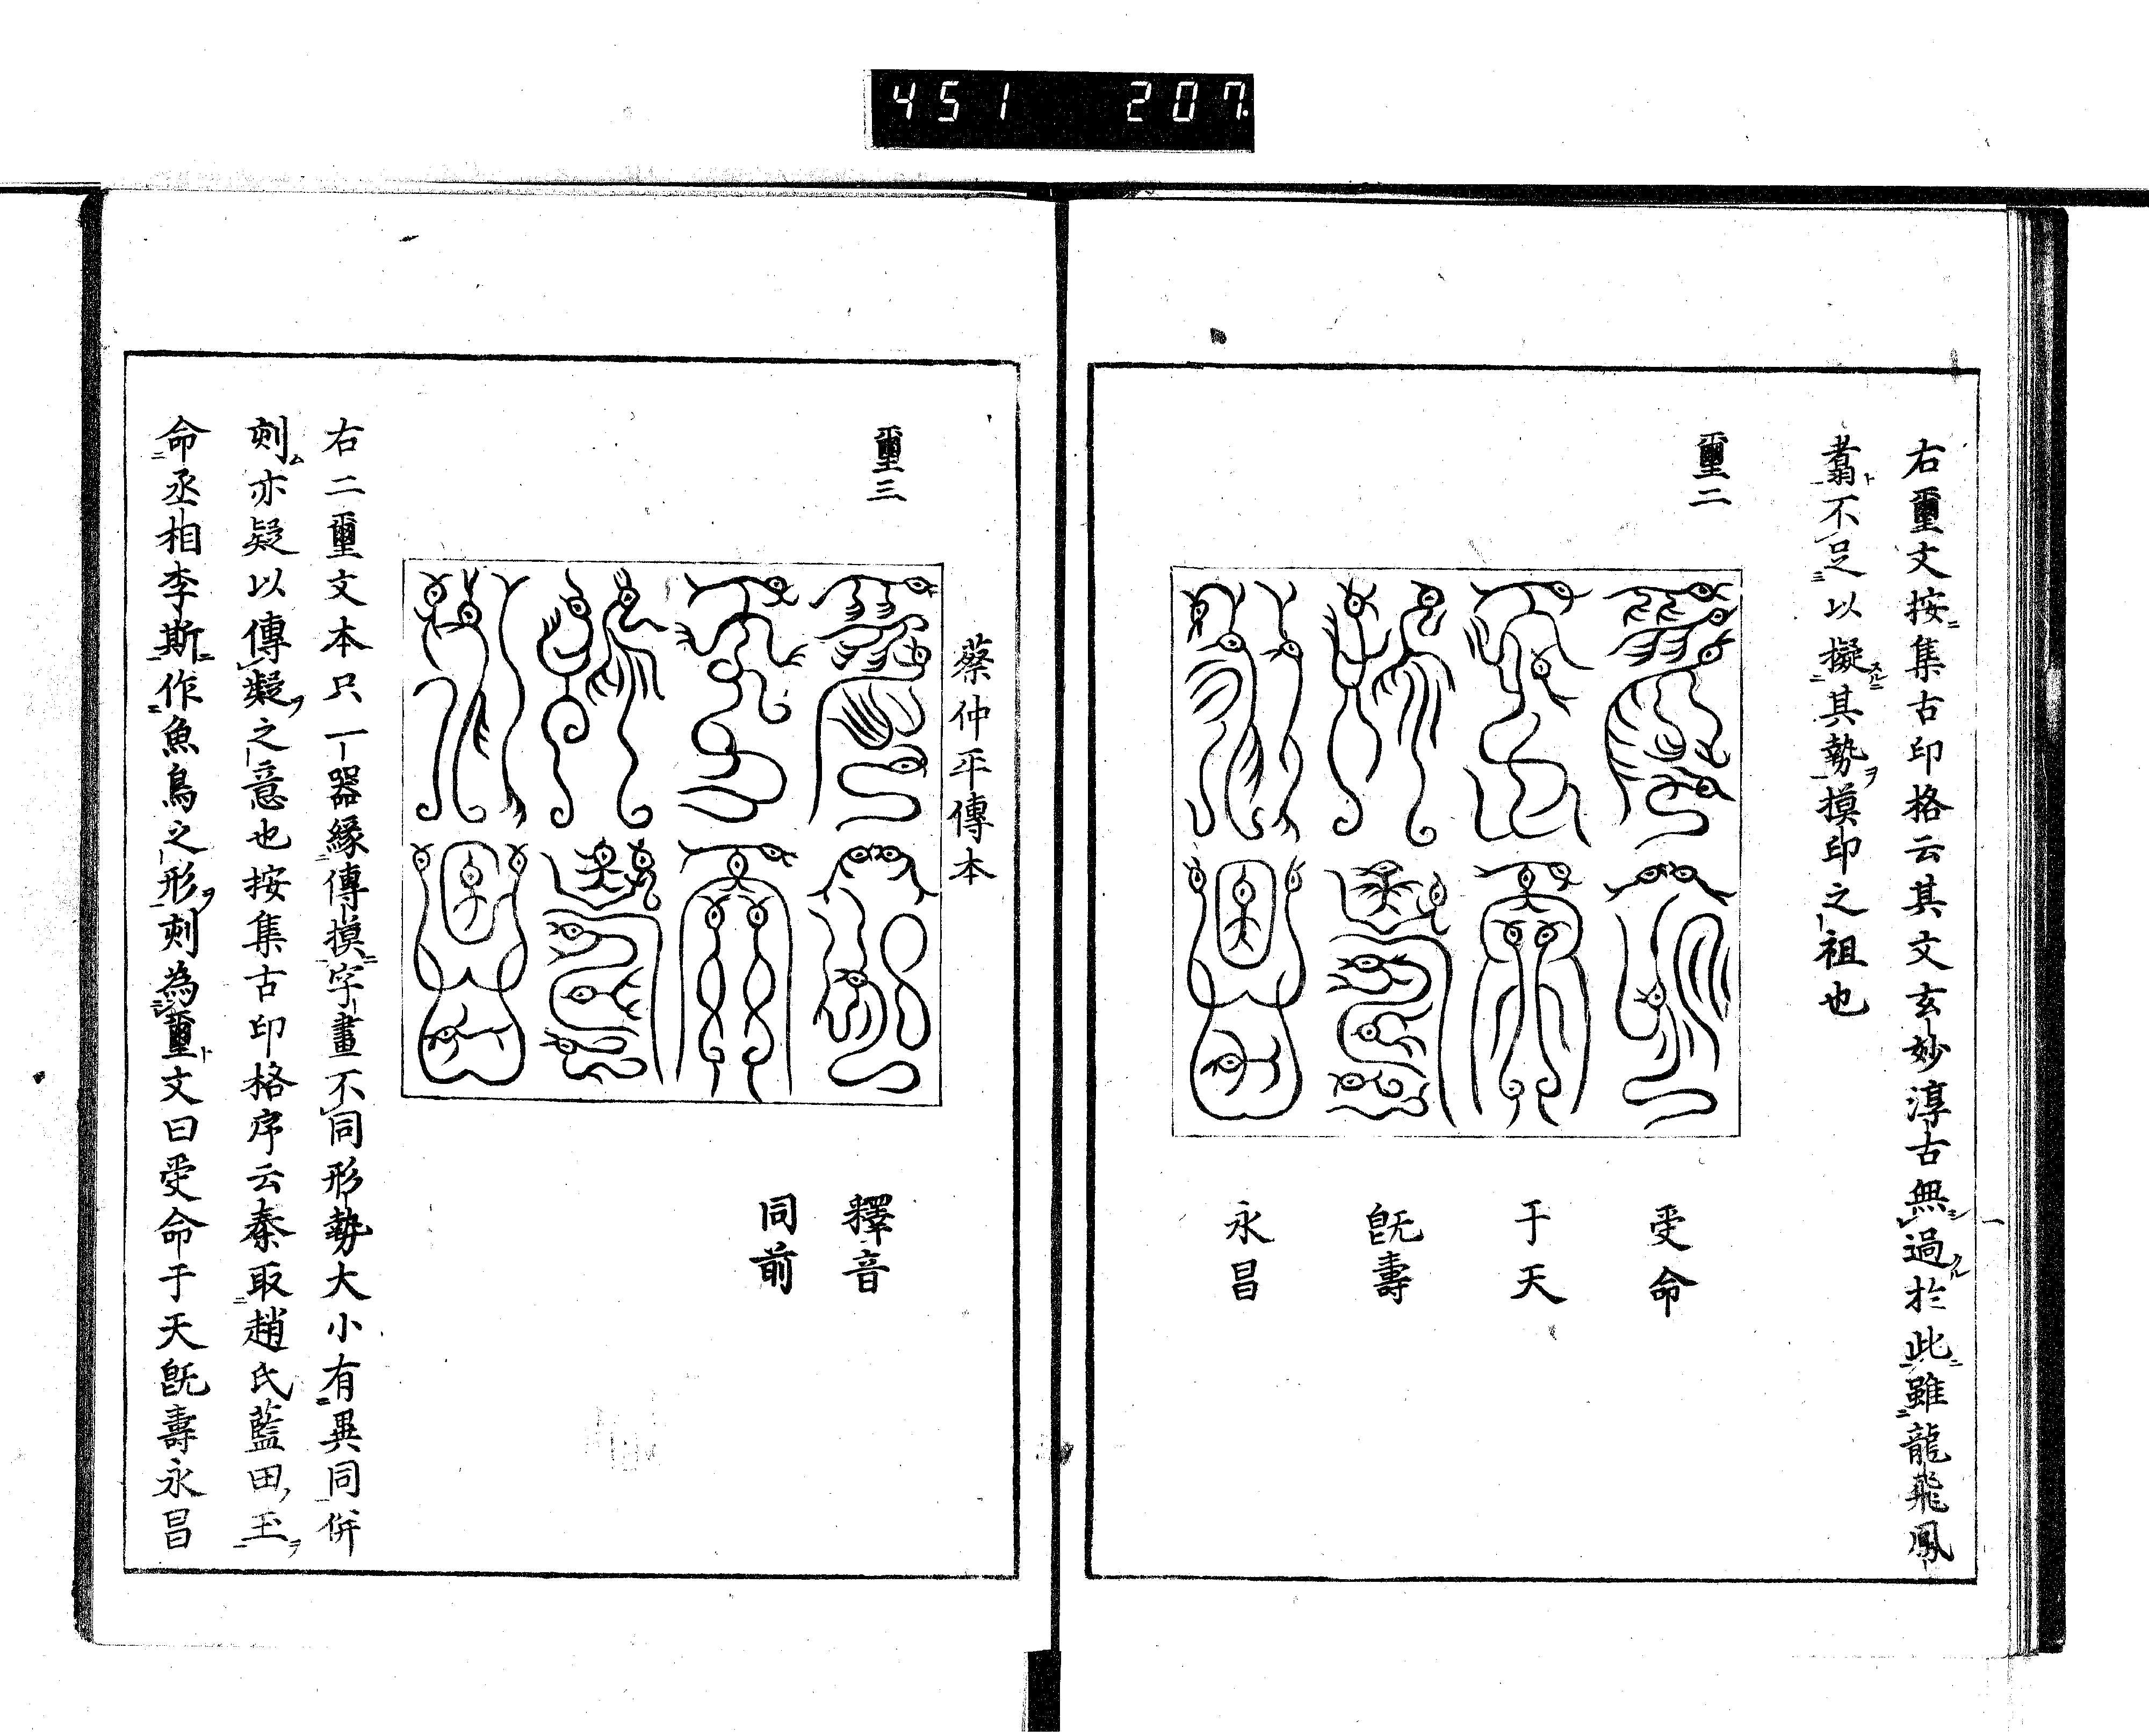 451 207
右璽文按集古印格云其文玄妙淳古無過於此雖龍飛鳳
翥不足以擬其勢摸印之祖也
璽二
受命
于天
旣壽
永昌
蔡仲平傳本
璽三
釋音
同前
右二璽文本只一器緣傳摸字畫不同形勢大小有異同併
刻亦疑以傳疑之意也按集古印格序云秦取趙氏藍田玉
命丞相李斯作魚鳥之形刻為璽文曰受命于天旣壽永昌